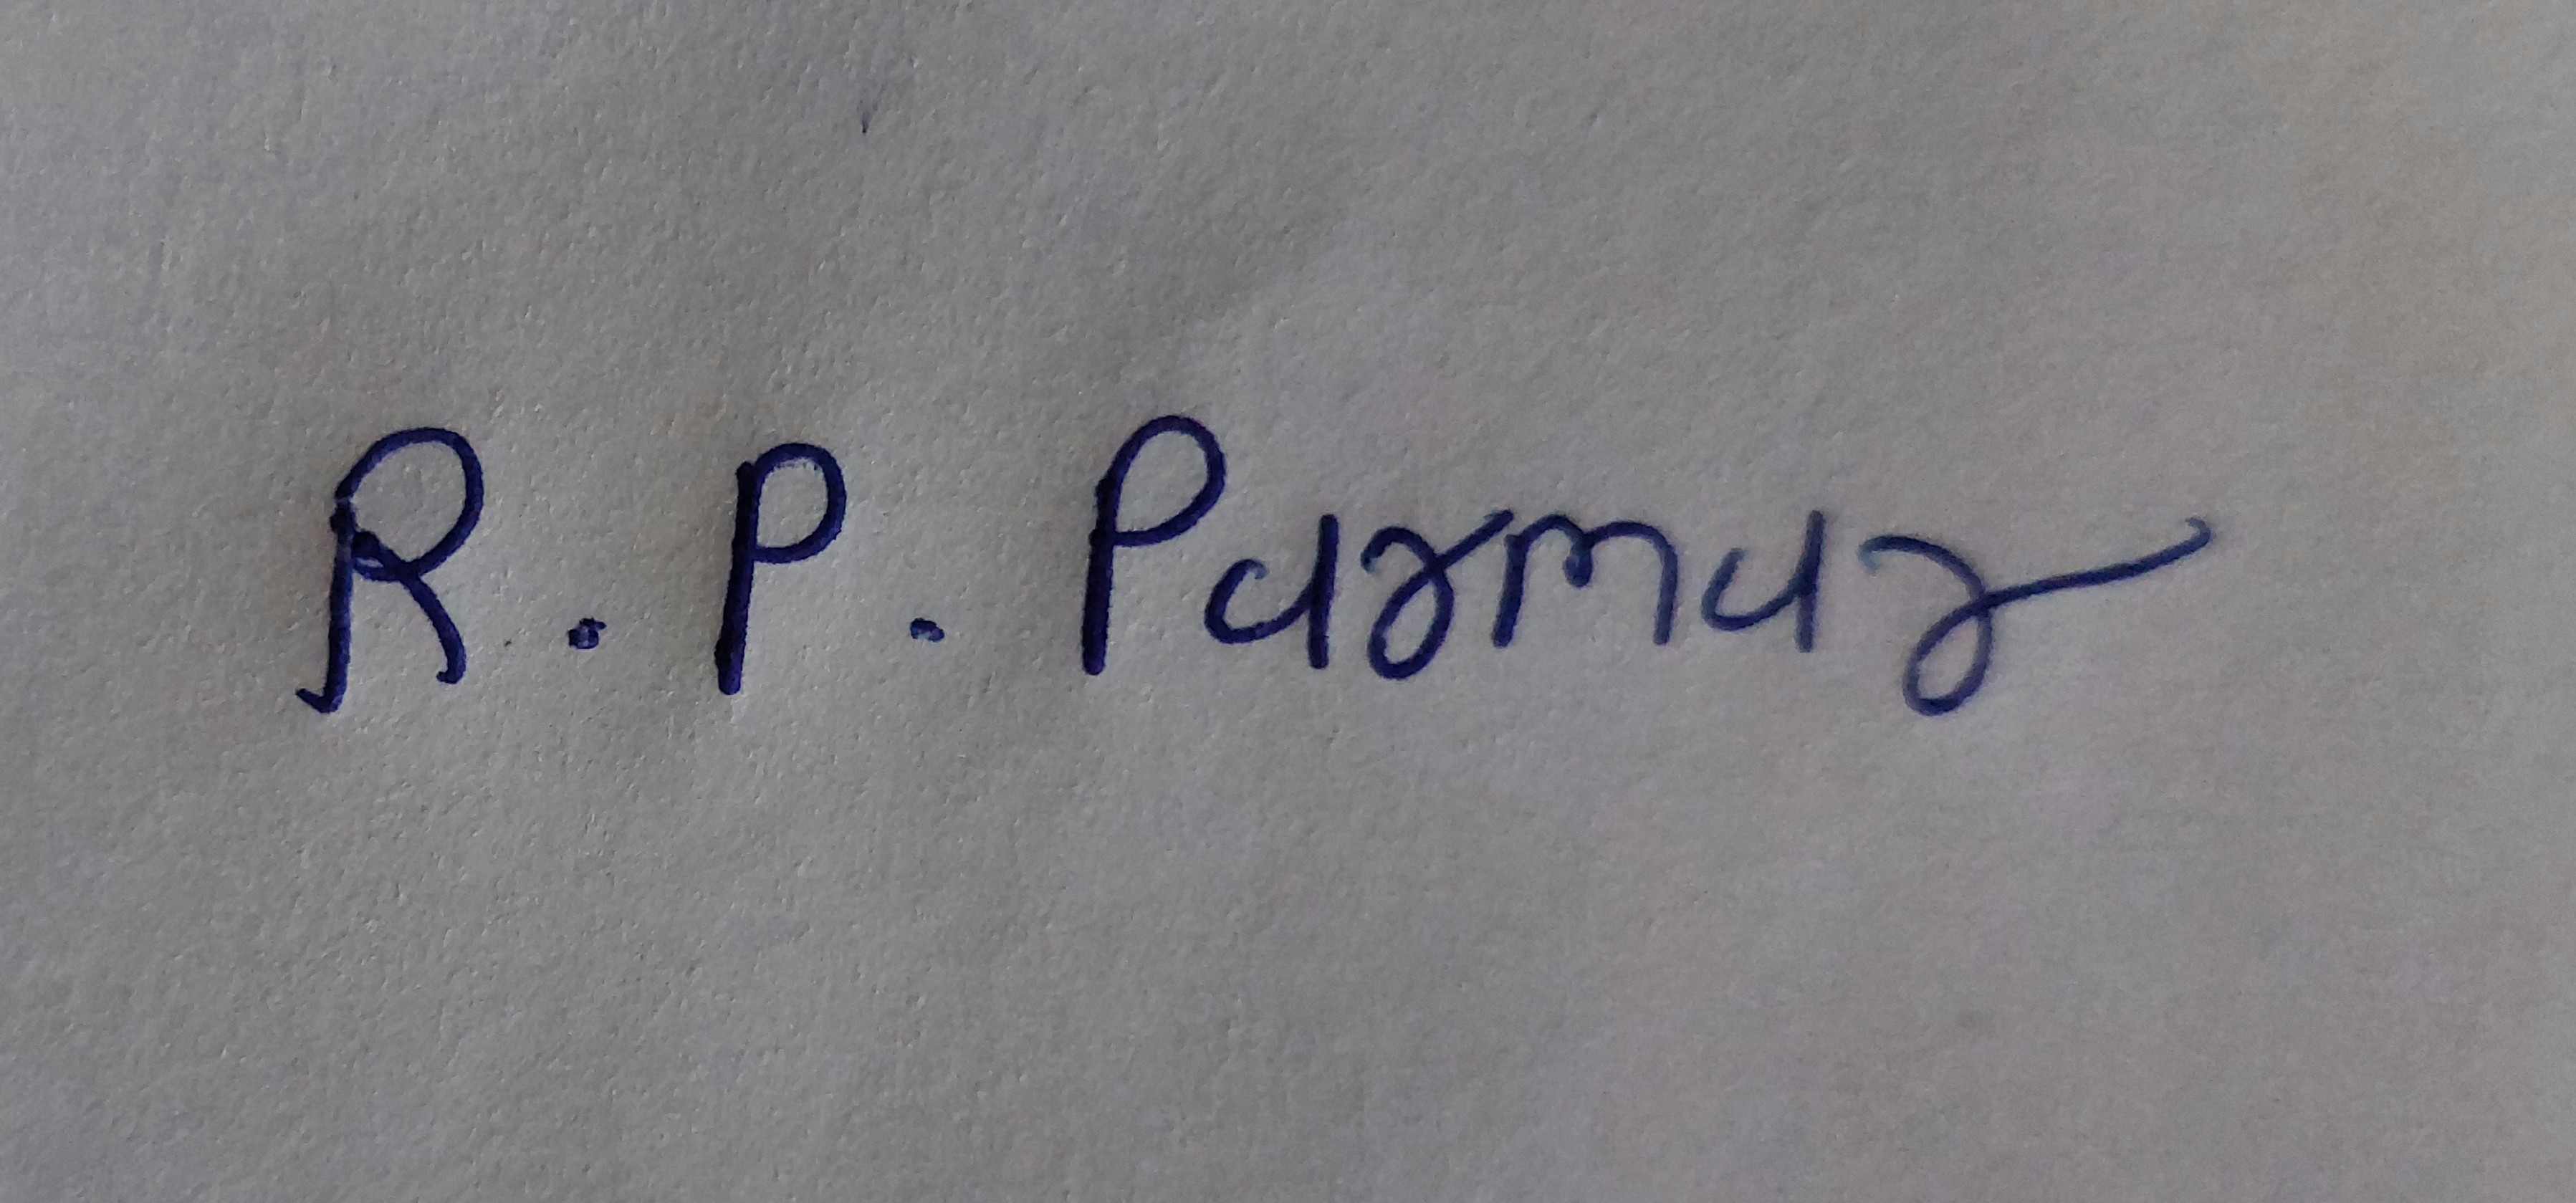 R. P. Parmar